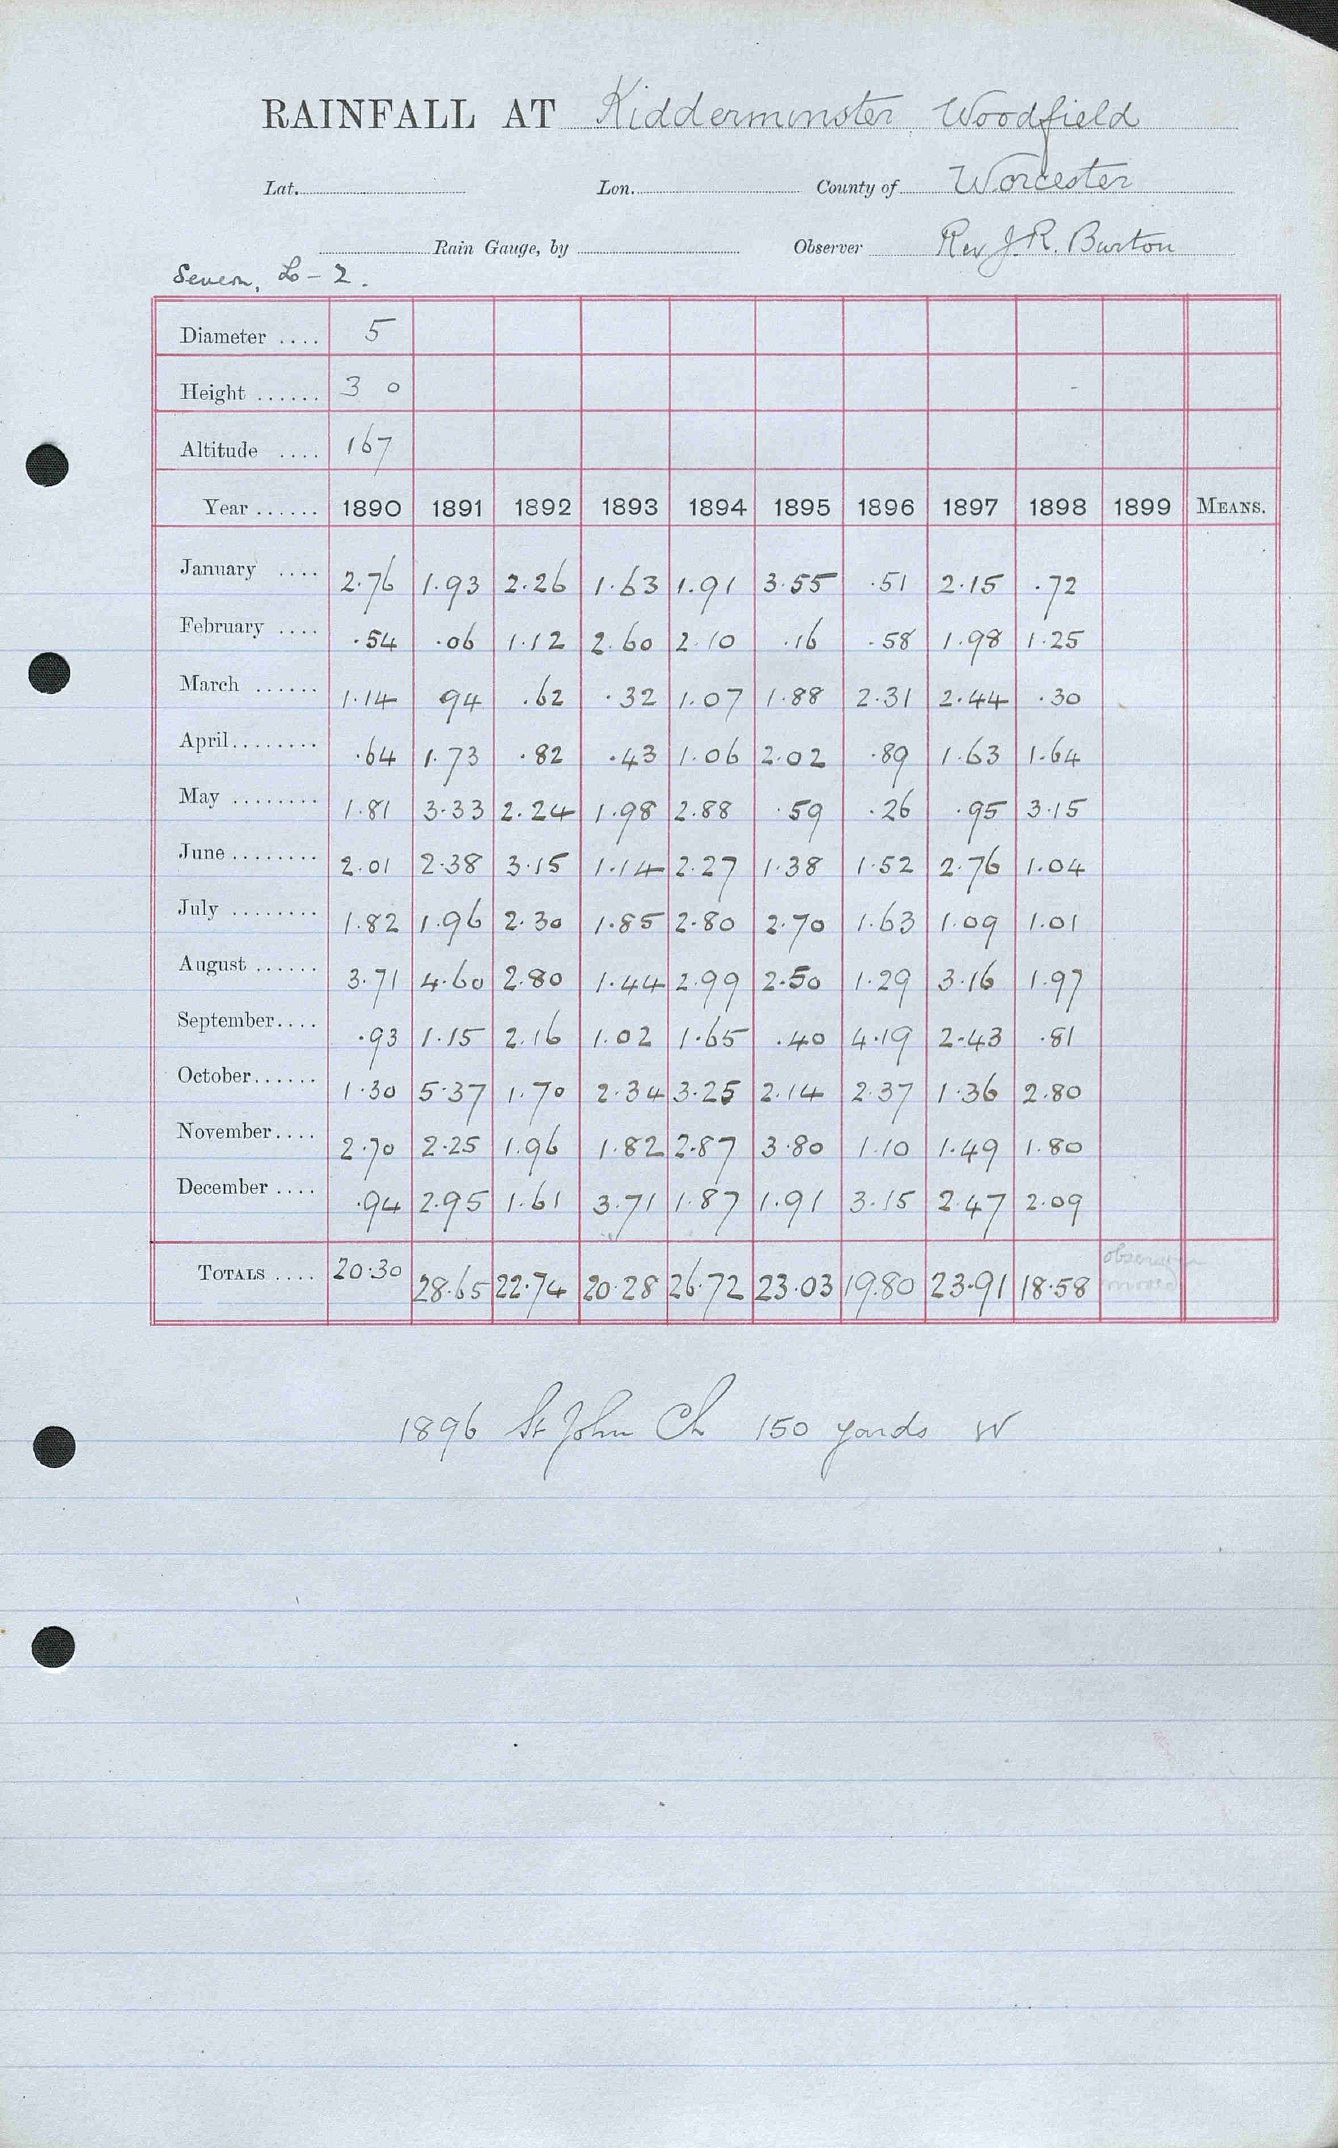 RAINFALL AT Kidderminster, Woodfield
Lat. Lon. County of Worcester
Rain Gauge, by Observer Rev J. R. Burton
Severn, L - 2.
Diameter .... 5
Height ...... 3 0
Altitude .... 167
Year ...... 1890 1891 1892 1893 1894 1895 1896 1897 1898 1899 MEANS.
January .... 2.76 1.93 2.26 1.63 1.91 3.55 .51 2.15 .72
February .... .54 .06 1.12 2.60 2.10 .16 .58 1.98 1.25
March ...... 1.14 94 .62 .32 1.07 1.88 2.31 2.44 .30
April........ .64 1.73 .82 .43 1.06 2.02 .89 1.63 1.64
May ........ 1.81 3.33 2.24 1.98 2.88 .59 .26 .95 3.15
June ........ 2.01 2.38 3.15 1.14 2.27 1.38 1.52 2.76 1.04
July ........ 1.82 1.96 2.30 1.85 2.80 2.70 1.63 1.09 1.01
August ...... 3.71 4.60 2.80 1.44 2.99 2.50 1.29 3.16 1.97
September.... .93 1.15 2.16 1.02 1.65 .40 4.19 2.43 .81
October...... 1.30 5.37 1.70 2.34 3.25 2.14 2.37 1.36 2.80
November.... 2.70 2.25 1.96 1.82 2.87 3.80 1.10 1.49 1.80
December .... .94 2.95 1.61 3.71 1.87 1.91 3.15 2.47 2.09
TOTALS .... 20.30 28.65 22.74 20.28 26.72 23.03 19.80 23.91 18.58
1896 St John Ch 150 yards W